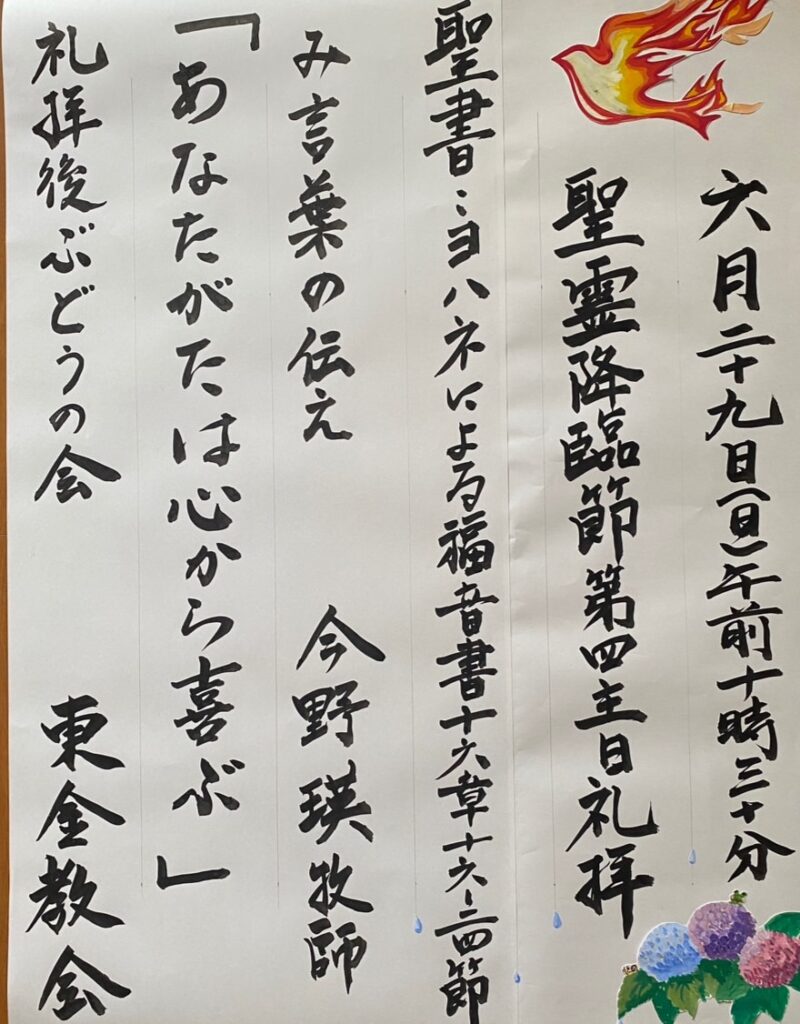 六月二十九日(日)午前十時三十分
聖霊降臨節第四主日礼拝
聖書:ヨハネによる福音書十六章十六~二四節
み言葉の伝え 今野瑛牧師
「あなたがたは心から喜ぶ」
礼拝後ぶどうの会 東金教会